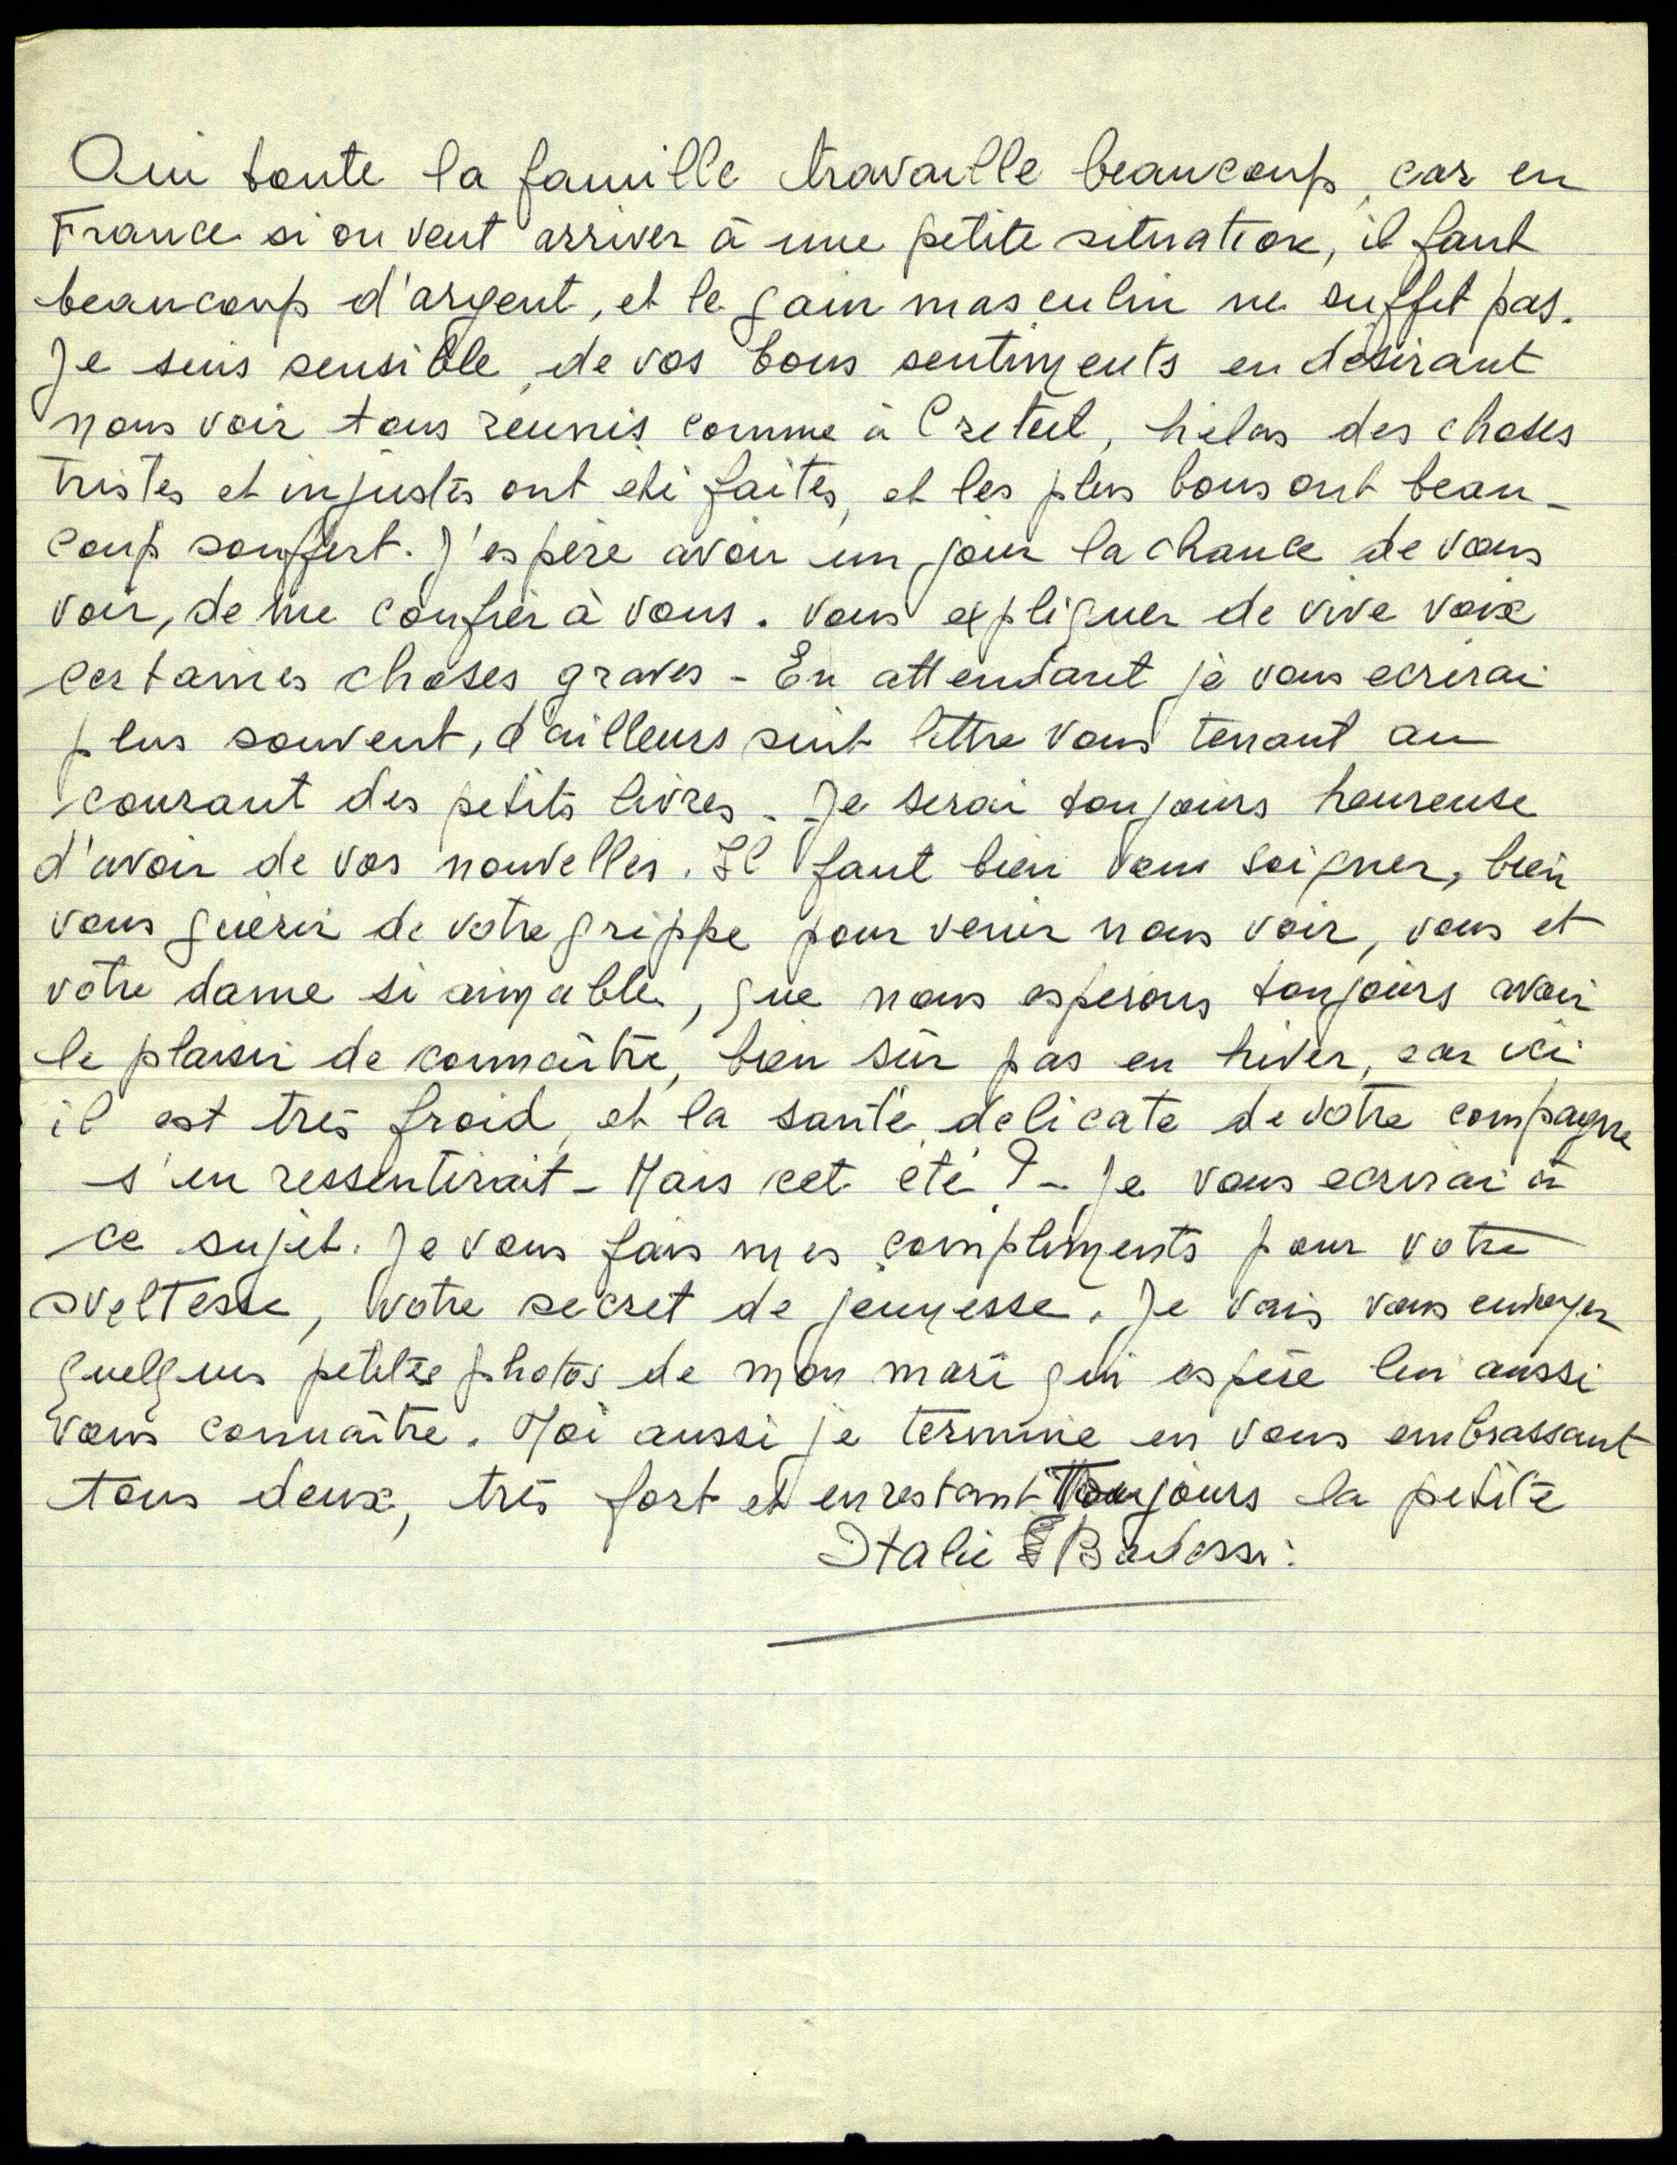 Oui toute la famille travaille beaucoup, car en
France si on veut arriver à une petite situation, il faut
beaucoup d'argent, et le gain masculin ne suffit pas.
Je suis sensible, de vos bons sentiments en désirant
nous voir tous reunis comme à Creteil, hélas des choses
tristes et injustes ont été faites, et les plus bons ont beau-
coup souffert. J'espère avoir un jour la chance de vous
voir, de me confier à vous. Vous expliquer de vive voix
certaines choses graves - En attendant je vous ecrirai
plus souvent, d'ailleurs suit lettre vous tenant au
courant des petits livres - Je serai toujours heureuse
d'avoir de vos nouvelles. Il faut bien vous soigner, bien
vous guérir de votre grippe pour venir nous voir, vous et
votre dame si aimable, que nous esperons toujours avoir
le plaisir de connaître, bien sûr pas en hiver, car ici
il est très froid, et la santé delicate de votre compagne
s'en ressentirait - Mais cet été ? - Je vous ecrirai à
ce sujet. Je vous fais mes compliments pour votre
sveltesse, votre secret de jeunesse. Je vais vous envoyer
quelques petites photos de mon mari qui espère lui aussi
vous connaître. Moi aussi je termine en vous embrassant
tous deux, très fort et en restant Toujours la petite
Italie Badessi.